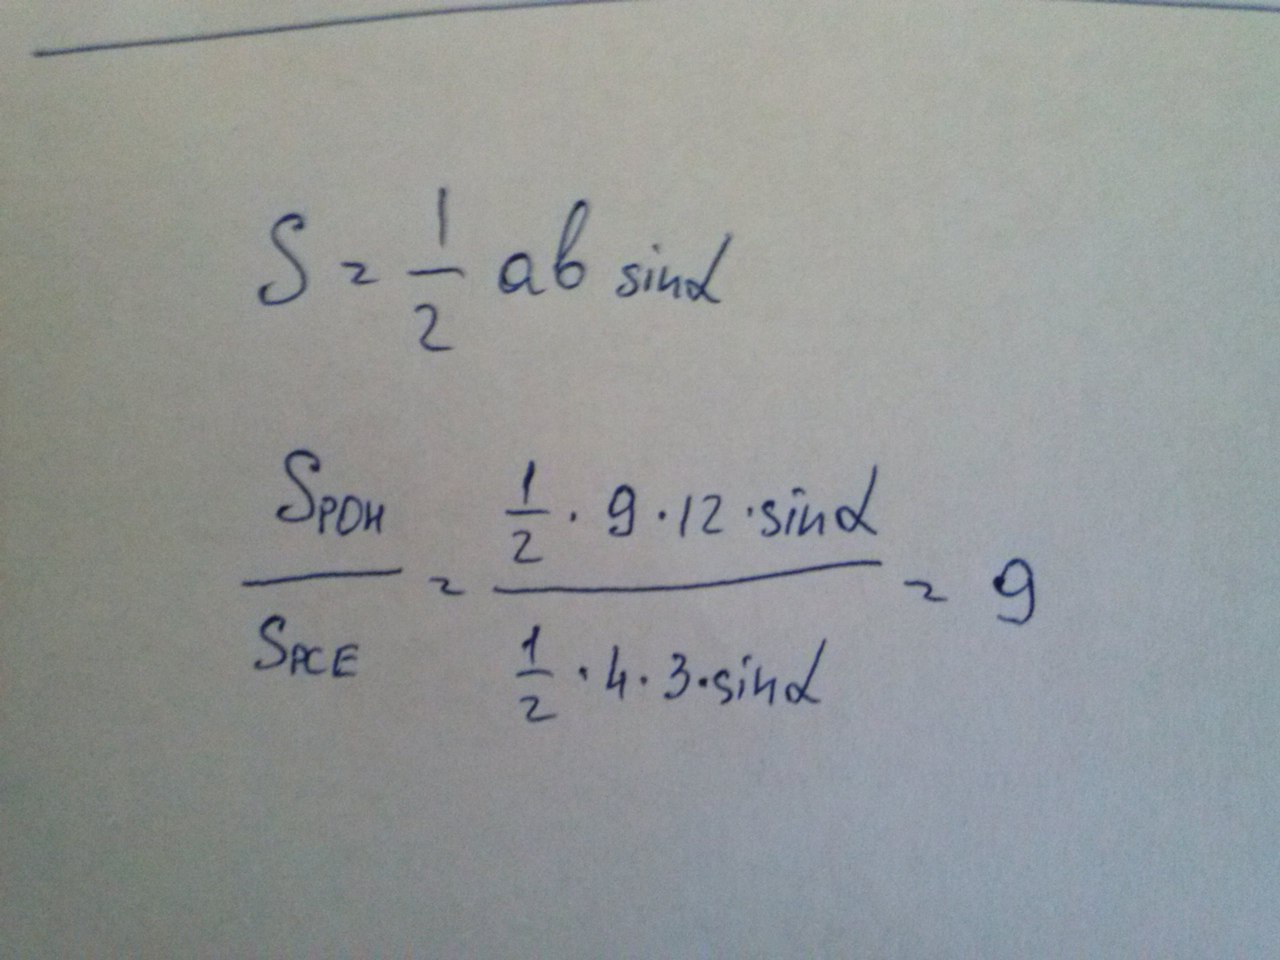 S = 1/2 ab sinα
S_PDH / S_PCE = (1/2 · 9 · 12 · sinα) / (1/2 · 4 · 3 · sinα) = 9